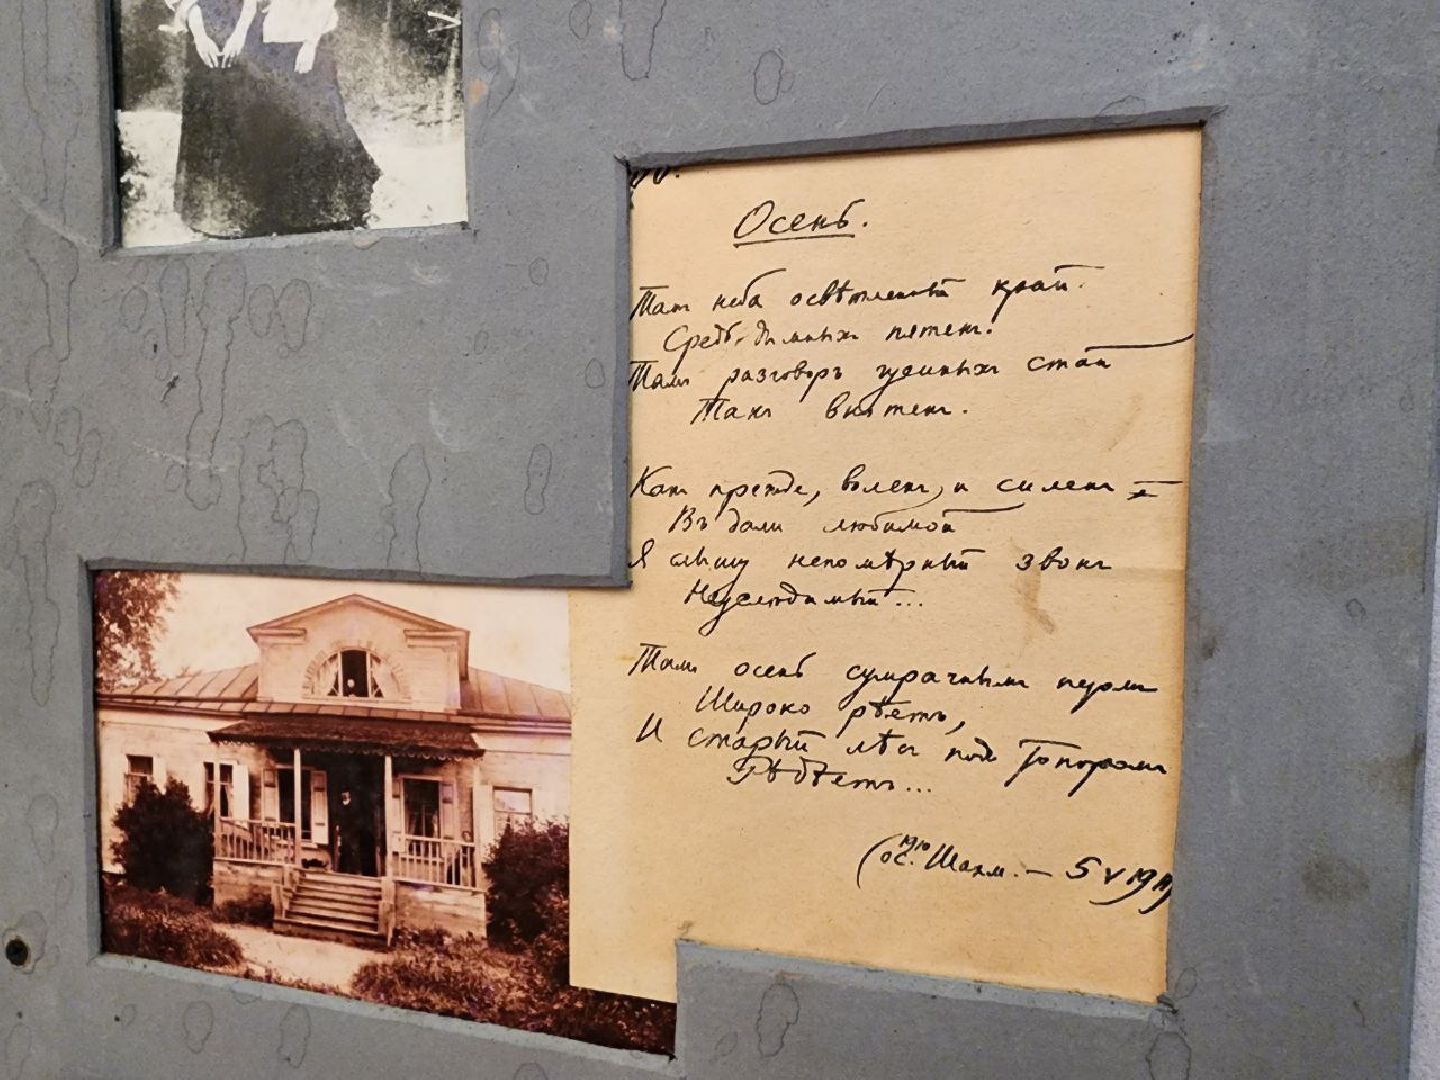 Осень.
Там неба осветленный край.
Средь дымных пятен.
Там разговоръ гусиныхъ стай
Такъ внятенъ.
Какъ прежде, воленъ, и силенъ я
Въ дали любимой
Я слышу непомѣрный звонъ
Неуследимый...
Тамъ осень сумрачнымъ перомъ
Широко рѣетъ,
И старый лѣсъ подъ топоромъ
Рѣдѣетъ...
(1910 ос. Шахм. — 5 V 19